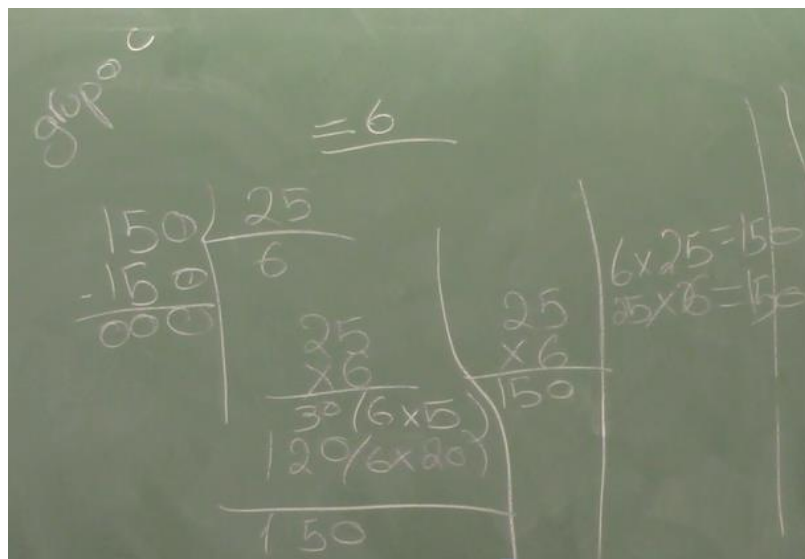 grupo C
= 6
150 25
-150 6
000
25
x6
30 (6x5)
120 (6x20)
150
25
x6
150
6x25=150
25x6=150